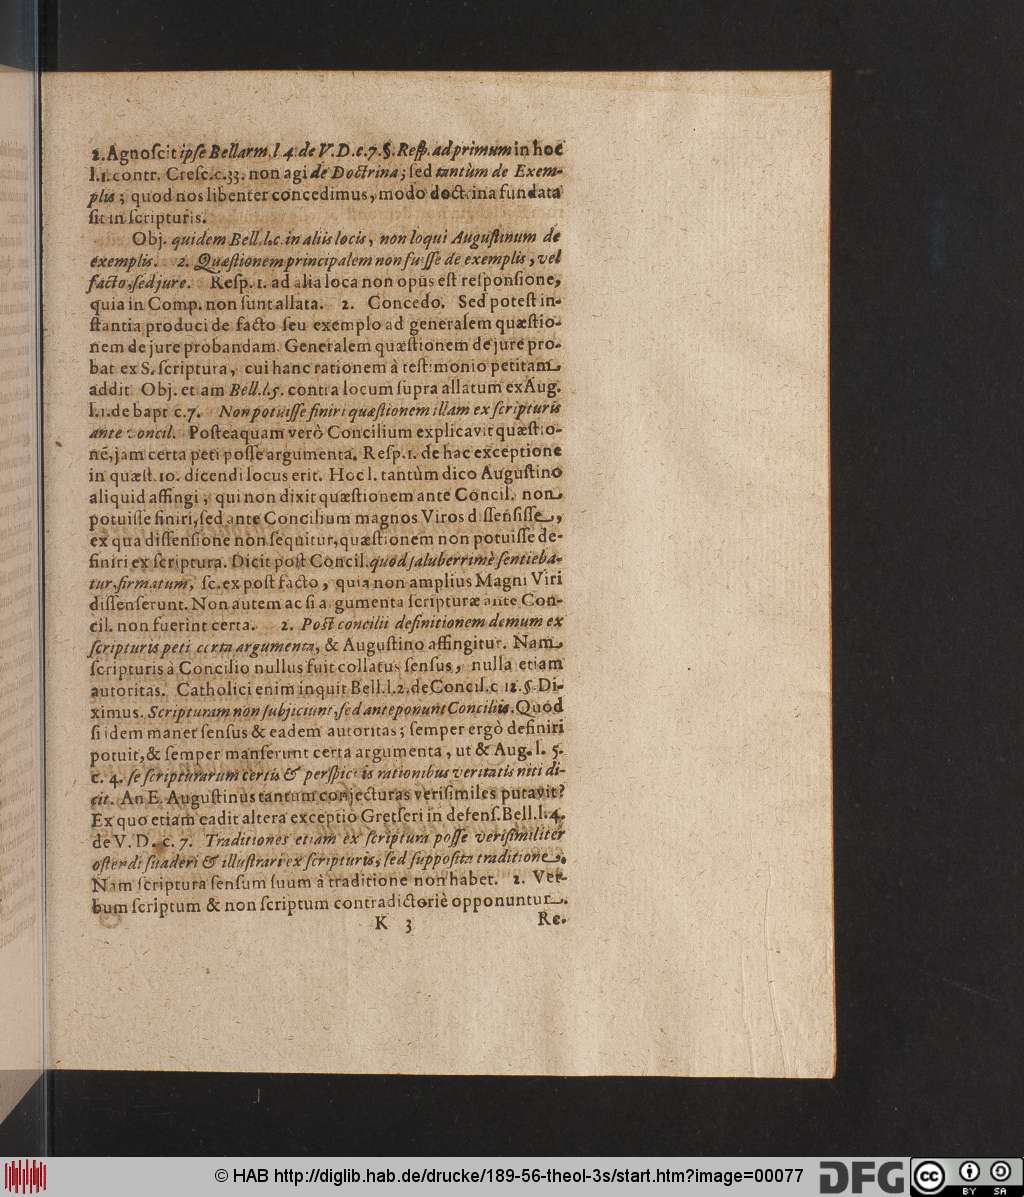 2. Agnoſcit ipſe Bellarm. l. 4. de V. D. c. 7. §. Reſp. ad primum in hoc
l. 1. contr. Creſc. c. 33. non agi de Doctrina; ſed tantùm de Exem-
plis; quod nos libenter concedimus, modo doctrina fundata
ſit in ſcripturis.
Obj. quidem Bell. l. c. in aliis locis, non loqui Auguſtinum de
exemplis. 2. Quæſtionem principalem non fuiſſe de exemplis, vel
facto, ſed jure. Reſp. 1. ad alia loca non opus eſt reſponſione,
quia in Comp. non ſunt allata. 2. Concedo. Sed poteſt in-
ſtantia produci de facto ſeu exemplo ad generalem quæſtio-
nem de jure probandam. Generalem quæſtionem de jure pro-
bat ex S. ſcriptura, cui hanc rationem à teſtimonio petitam
addit. Obj. etiam Bell. l. 5. contra locum ſupra allatum ex Aug.
l. 1. de bapt. c. 7. Non potuiſſe finiri quæſtionem illam ex ſcripturis
ante concil. Poſteaquam verò Concilium explicavit quæſtio-
nē, jam certa peti poſſe argumenta. Reſp. 1. de hac exceptione
in quæſt. 10. dicendi locus erit. Hoc l. tantùm dico Auguſtino
aliquid affingi; qui non dixit quæſtionem ante Concil. non
potuiſſe finiri, ſed ante Concilium magnos Viros diſſenſiſſe,
ex qua diſſenſione non ſequitur, quæſtionem non potuiſſe de-
finiri ex ſcriptura. Dicit poſt Concil. quod ſaluberrimè ſentieba-
tur, firmatum, ſc. ex poſt facto, quia non amplius Magni Viri
diſſenſerunt. Non autem ac ſi argumenta ſcripturæ ante Con-
cil. non fuerint certa. 2. Poſt concilii definitionem demum ex
ſcripturis peti certa argumenta, & Auguſtino affingitur. Nam
ſcripturis à Concilio nullus fuit collatus ſenſus, nulla etiam
autoritas. Catholici enim inquit Bell. l. 2. de Concil. c 12. §. Di-
ximus. Scripturam non ſubjiciunt, ſed anteponunt Conciliis. Quod
ſi idem manet ſenſus & eadem autoritas; ſemper ergò definiri
potuit, & ſemper manſerunt certa argumenta, ut & Aug. l. 5.
c. 4. ſe ſcripturarum certis & perſpicuis rationibus veritatis niti di-
cit. An E. Auguſtinus tantum conjecturas veriſimiles putavit?
Ex quo etiam cadit altera exceptio Gretſeri in defenſ. Bell. l. 4.
de V. D. c. 7. Traditiones etiam ex ſcriptura poſſe veriſimiliter
oſtendi ſuaderi & illuſtrari ex ſcripturis; ſed ſuppoſita traditione.
Nam ſcriptura ſenſum ſuum à traditione non habet. 2. Ver-
bum ſcriptum & non ſcriptum contradictoriè opponuntur.
K 3 Re.
© HAB http://diglib.hab.de/drucke/189-56-theol-3s/start.htm?image=00077
DFG
cc BY SA